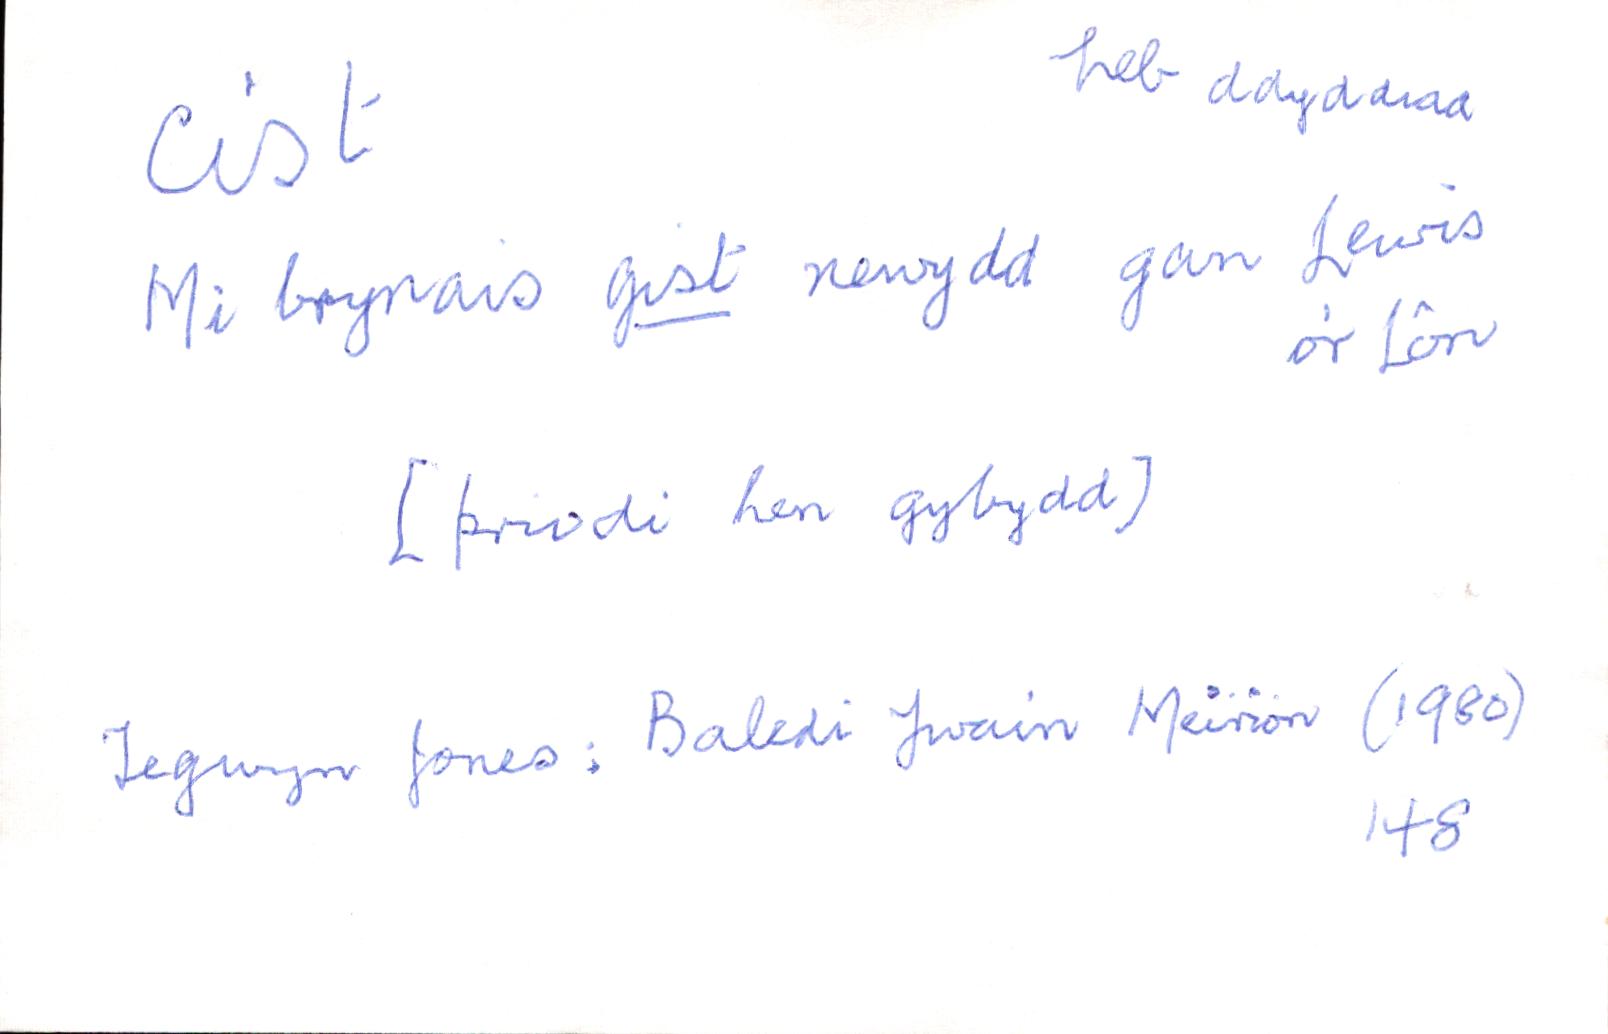 cist
heb ddyddiad
Mi brynais gist newydd gan Lewis
o'r Lôn
[priodi hen gybydd]
Tegwyn Jones: Baledi Ywain Meirion (1980)
148